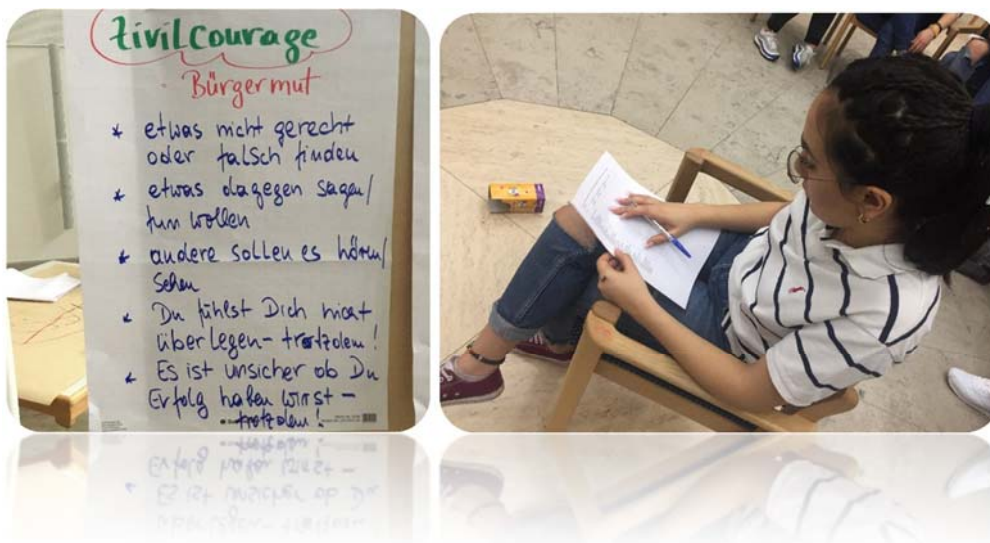 Zivilcourage
Bürgermut
* etwas nicht gerecht
oder falsch finden
* etwas dagegen sagen/
tun wollen
* andere sollen es hören/
sehen
* Du fühlst Dich nicht
überlegen - trotzdem!
* Es ist unsicher ob Du
Erfolg haben wirst -
trotzdem!